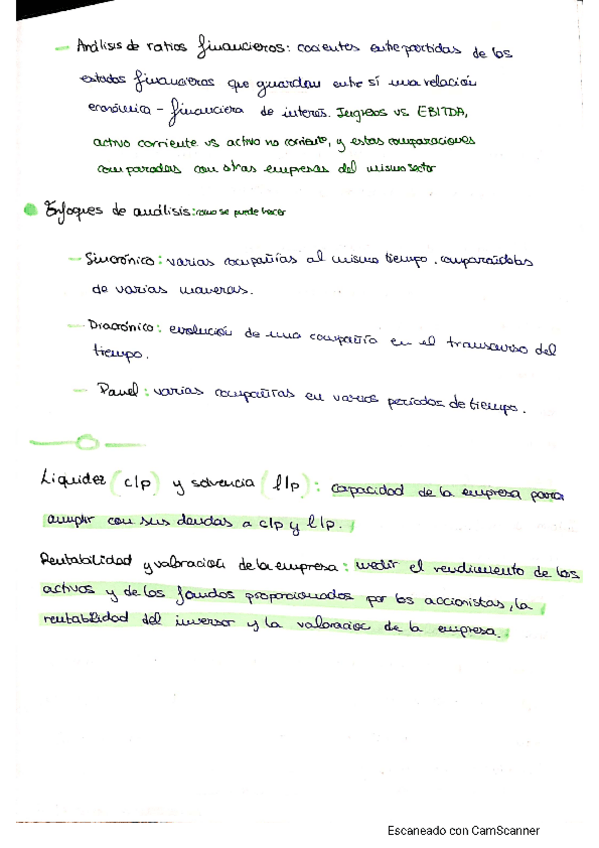 – Análisis de ratios financieros: cocientes entre partidas de los
estados financieros que guardan entre sí una relación
económica – financiera de interés. Ingresos vs EBITDA,
activo corriente vs activo no corriente, y estas comparaciones
comparadas con otras empresas del mismo sector
Enfoques de análisis: como se puede hacer
– Sincrónico: varias compañías al mismo tiempo. comparándolas
de varias maneras.
– Diacrónico: evolución de una compañía en el transcurso del
tiempo.
– Panel: varias compañías en varios períodos de tiempo.
Liquidez (c/p) y solvencia (l/p): capacidad de la empresa para
cumplir con sus deudas a c/p y l/p.
Rentabilidad y valoración de la empresa: medir el rendimiento de los
activos y de los fondos proporcionados por los accionistas, la
rentabilidad del inversor y la valoración de la empresa.
Escaneado con CamScanner